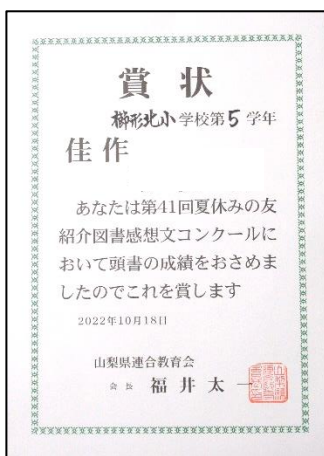 賞状
櫛形北小学校第5学年
佳作
あなたは第41回夏休みの友
紹介図書感想文コンクールに
おいて頭書の成績をおさめま
したのでこれを賞します
2022年10月18日
山梨県連合教育会
会長 福井太一